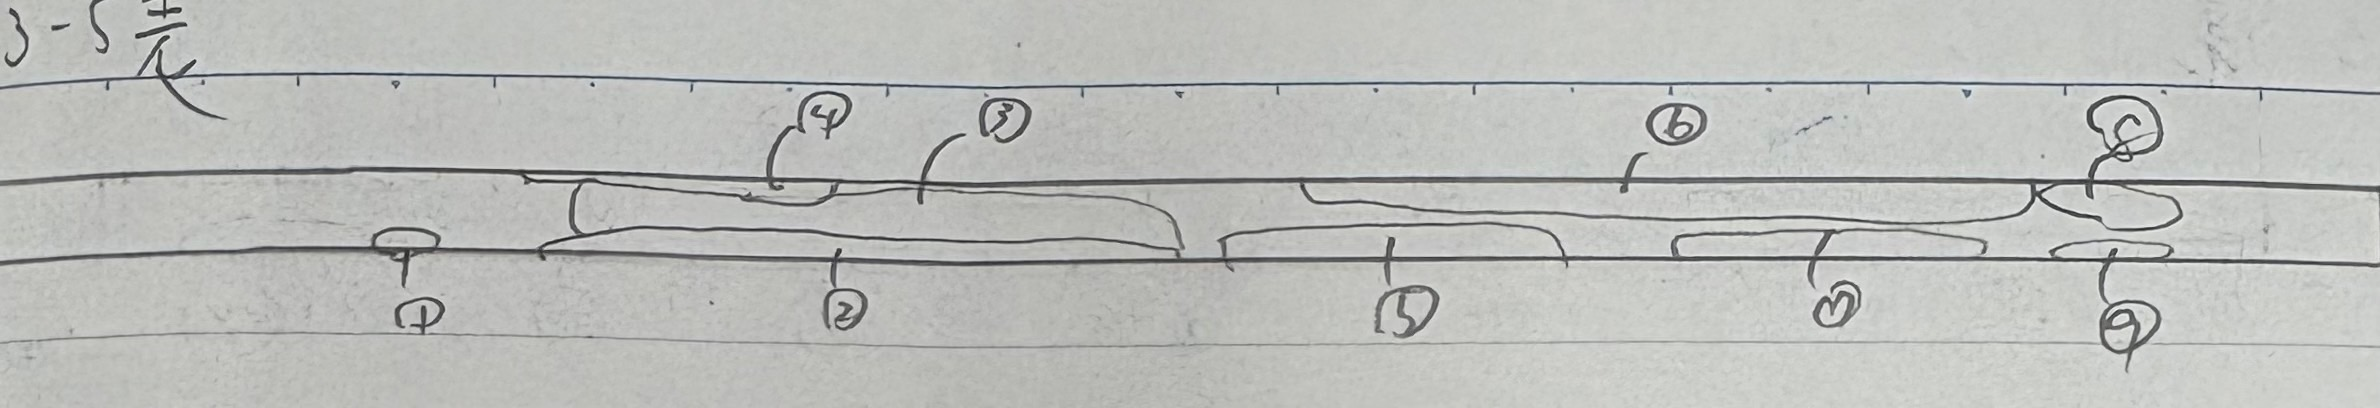 3-5 左
④ ③ ⑥ ⑧
① ② ⑤ ⑦ ⑨